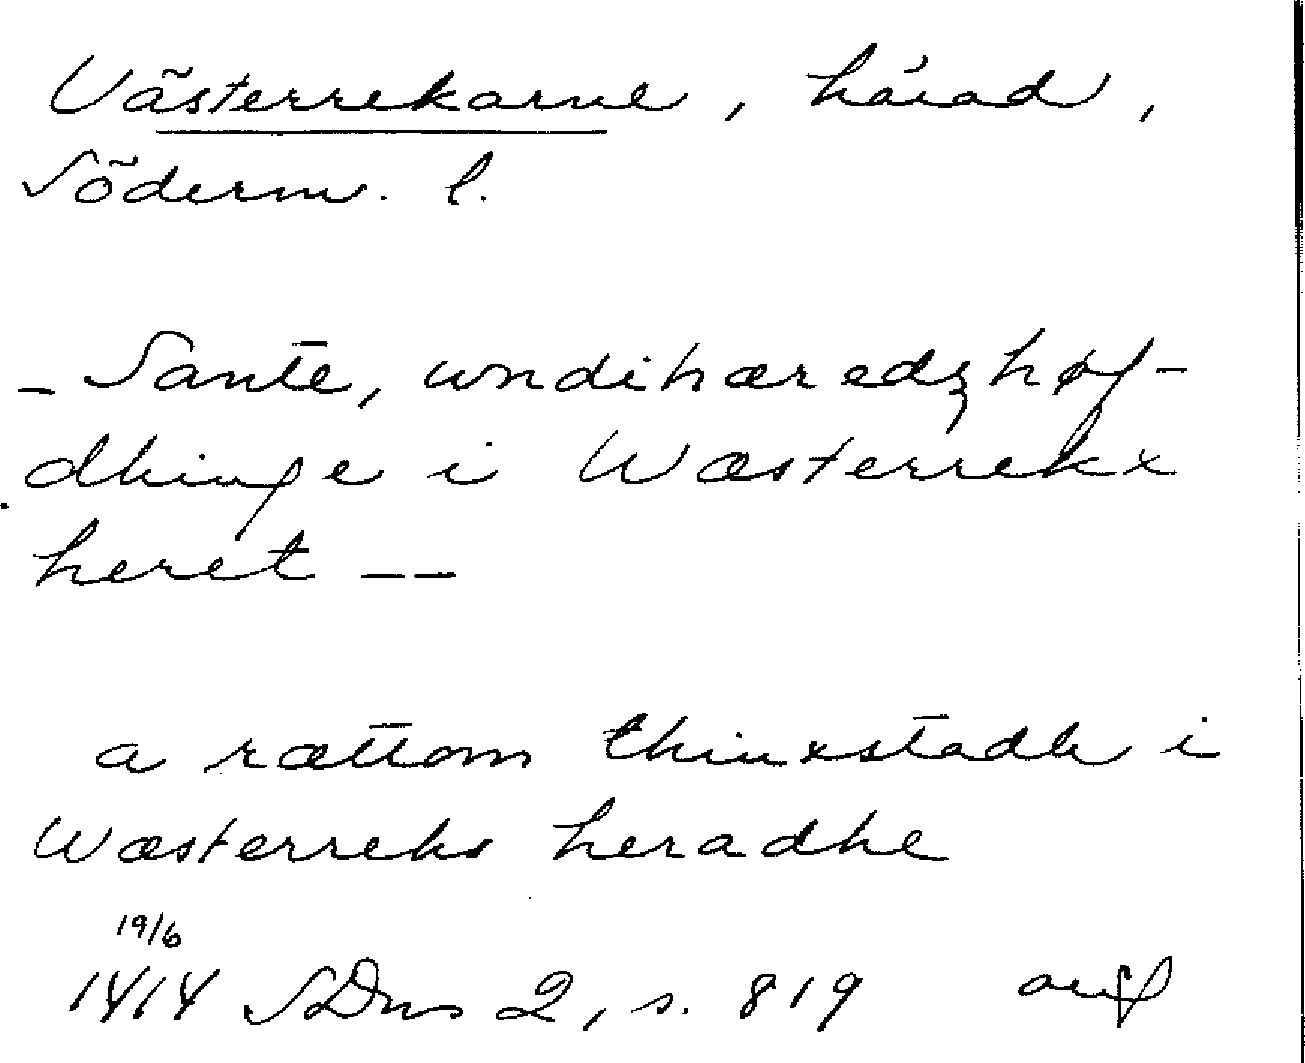 Västerrekarne, härad,
Söderm. l.
- Sante, undihæredzhøf-
dhinge i Wæsterrekx
heret --
a rættom thinxstadh i
Wæsterreks heradhe
19/6
1414 SDns 2, s. 819 avsl